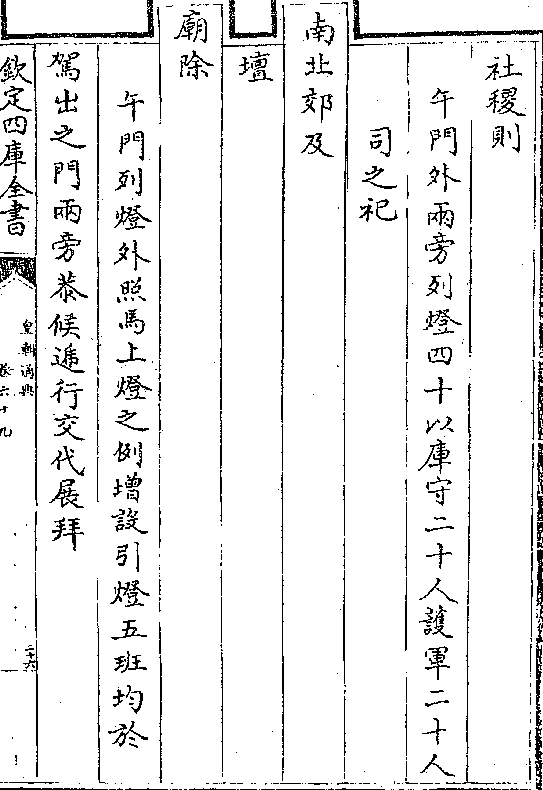 社稷則
午門外兩旁列燈四十以庫守二十人護軍二十人
司之祀
南北郊及
壇
廟除
午門列燈外照馬上燈之例增設引燈五班均於
駕出之門兩旁恭候遞行交代展拜
欽定四庫全書
皇朝通典
卷六十九
二十六